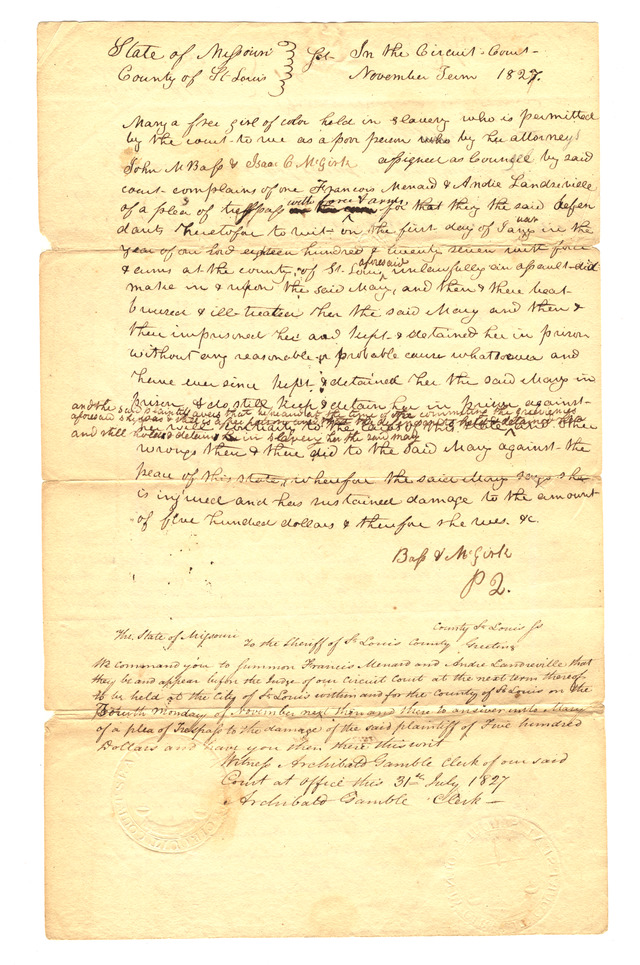 State of Missouri
County of St Louis
Sct. In the Circuit Court
November Term 1827.
Mary a free girl of color held in slavery who is permitted
by the court to sue as a poor person by her attorneys
John M Bass & Isaac C McGirk assigned as Councel by said
court complains of one Francois Menard & Andre Landreville
of a plea of trespass with force & arms for that they the said defen
dants heretofore to wit on the first day of January in the
year of our lord eighteen hundred & twenty seven with force
& arms at the county aforesaid of St. Louis unlawfully an assault did
make in & upon the said Mary, and then & there beat
bruised & ill-treated her the said Mary and then &
there imprisoned her and kept & detained her in prison
without any reasonable or probable cause whatsoever and
have ever since kept & detained her the said Mary in
prison & do still keep & detain her in prison against
and the said plaintiff avers that before and at the time of the committing the grievances
aforesaid she was & still is a free person and that the defendants held & detained
and still holds & detains her in slavery her the said Mary
& other
wrongs then & there did to the said Mary against the
peace of this state, wherefore the said Mary says she
is injured and has sustained damage to the amount
of five hundred dollars & therefore she sues. &c.
Bass & McGirk
P Q.
The State of Missouri County St Louis Ss
To the Sheriff of St Louis County Greeting
We command you to Summon Francis Menard and Andre Landreville that
they be and appear before the Judge of our Circuit Court at the next term thereof
to be held at the City of St Louis within and for the County of St Louis on the
Fourth Monday of November next then and there to answer unto Mary
of a plea of Trespass to the damage of the said plaintiff of Five hundred
Dollars and have you then there this writ
Witness Archibald Gamble Clerk of our said
Court at office this 31st July 1827
Archibald Gamble Clerk